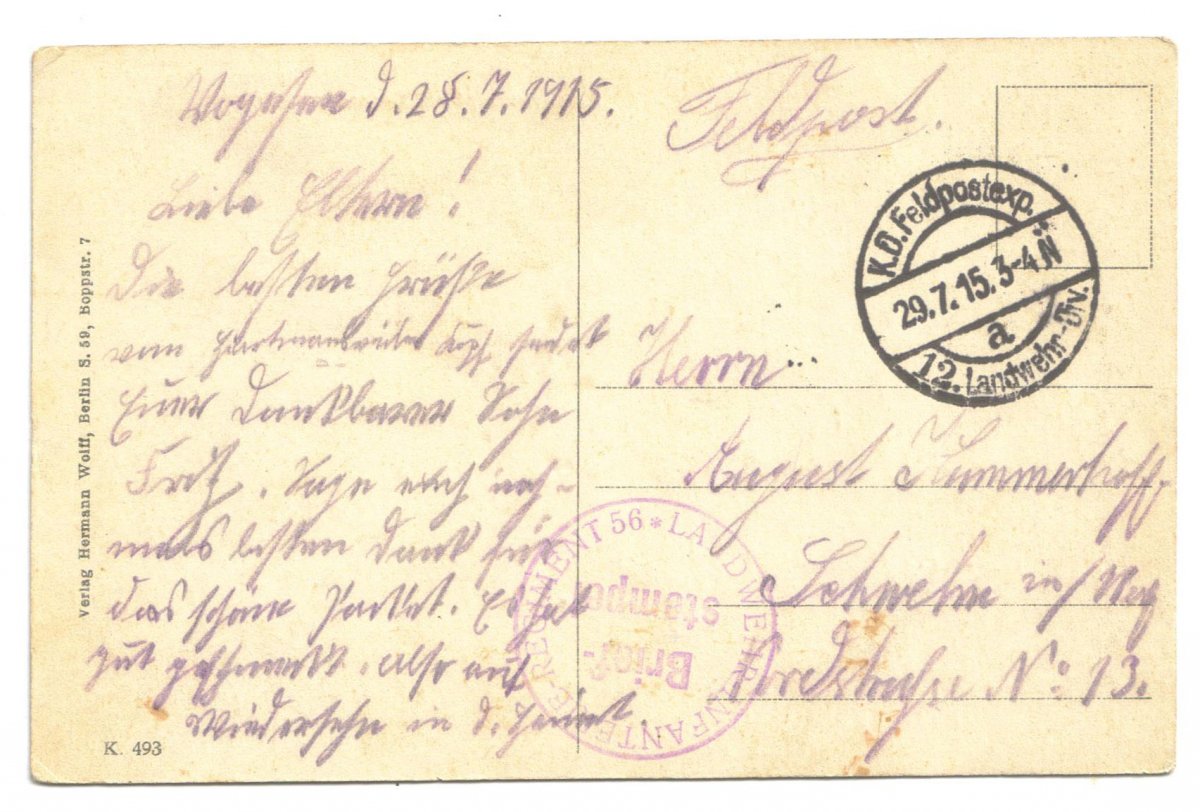 Vogesen d. 28. 7. 1915.
Liebe Eltern!
Die besten Grüße
vom Hartmannsweiler Kopf sendet
Euer Dankbarer Sohn
Fritz. Sage euch noch-
mals besten Dank für
das schöne Packet. Es hat
gut geschmeckt. Also auf
Wiedersehn in d. Heimat
Feldpost.
K.D. Feldpostexp.
29.7.15. 3-4 N
a
12. Landwehr-Div.
Herrn
August Kummerhoff
Schwelm in/
Nordstraße No 13.
LANDWEHR-INFANTERIE-REGIMENT 56 *
Brief-
stempel
Verlag Hermann Wolff, Berlin S. 59, Boppstr. 7
K. 493